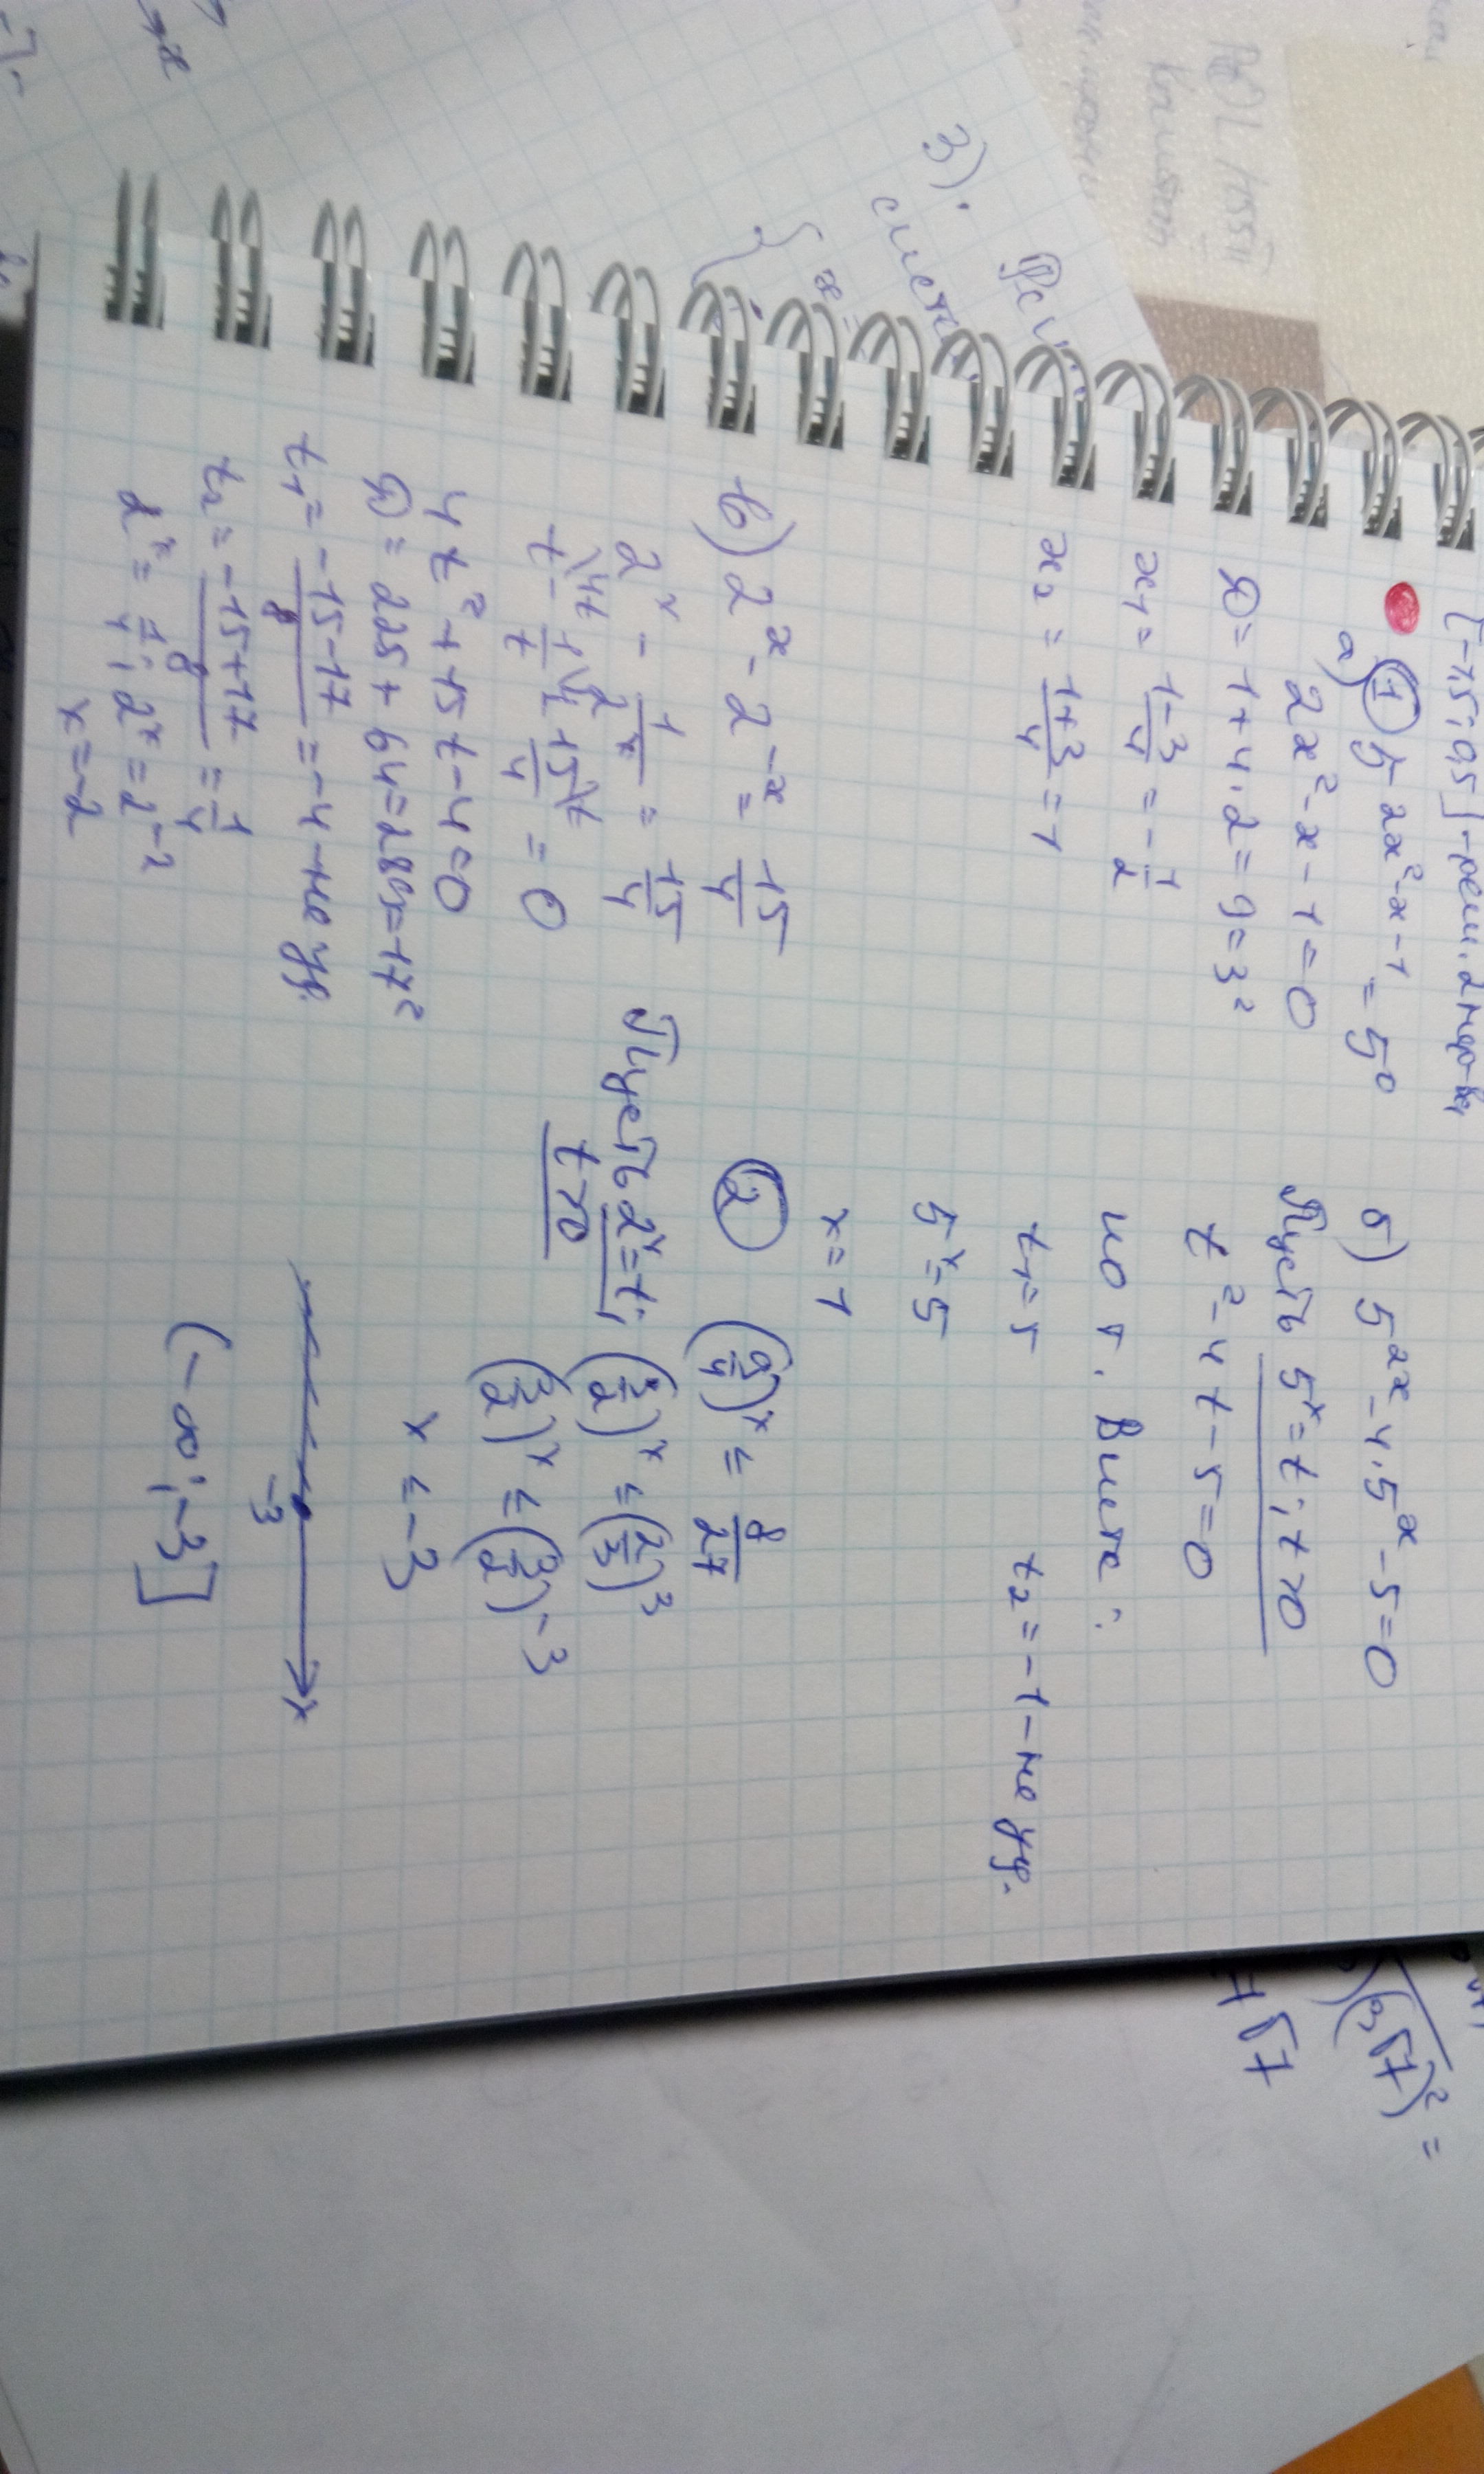 [-1,5; 0,5] - реш. 2 нер-ва
① 5^(2x²-x-1) = 5⁰
а) 2x² - x - 1 = 0
D = 1 + 4·2 = 9 = 3²
x₁ = (1-3)/4 = -1/2
x₂ = (1+3)/4 = 1
б) 5^(2x) - 4·5^x - 5 = 0
Пусть 5^x = t; t>0
t² - 4t - 5 = 0
по т. Виета:
t₁ = 5 t₂ = -1 - не уд.
5^x = 5
x = 1
в) 2^x - 2^(-x) = 15/4
2^x - 1/2^x = 15/4 Пусть 2^x = t;
t>0
t\4t - 1/t\4 + 15/4\t = 0
4t² + 15t - 4 = 0
D = 225 + 64 = 289 = 17²
t₁ = (-15-17)/8 = -4 - не уд.
t₂ = (-15+17)/8 = 1/4
2^x = 1/4; 2^x = 2^(-2)
x = -2
② (9/4)^x ≤ 8/27
(3/2)^x ≤ (2/3)³
(3/2)^x ≤ (3/2)^(-3)
x ≤ -3
-3 x
(-∞; -3]
3)
систе
{ x =
√7